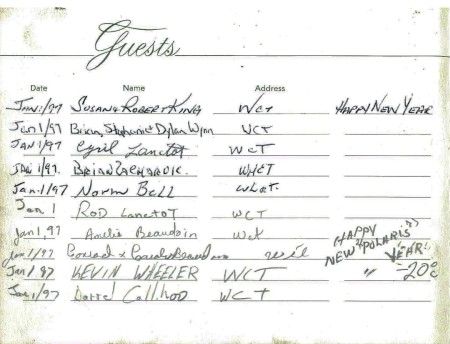 Guests
Date Name Address
Jan 1/97 Susan & Robert King WCT HAPPY NEW YEAR
Jan 1/97 Brian, Stephanie & Dylan Wynn WCT
JAN 1/97 Cyril Lanctot WCT
JAN 1/97. BRIAN WHCT
Jan-1/97 Norm Bell
Jan 1 ROD Lanctot WCT
Jan 1, 97 Amelie Beaudoin HAPPY
Jan 1/97 Conrad & NEW "POLARIS" YEAR!
Jan 1 97 KEVIN WHEELER WCT " -20°C
Jan 1/97 Darrel WCT